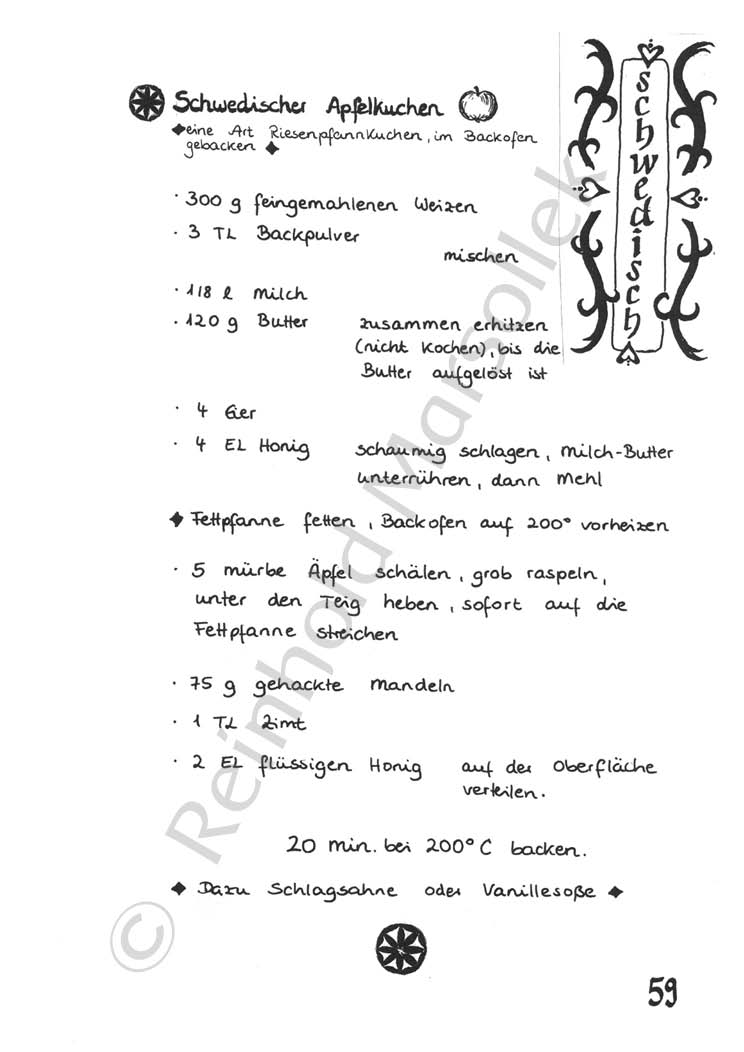 Schwedischer Apfelkuchen
eine Art Riesenpfannkuchen, im Backofen
gebacken
schwedisch
· 300 g feingemahlenen Weizen
· 3 TL Backpulver
mischen
· 1/8 l Milch
· 120 g Butter zusammen erhitzen
(nicht kochen), bis die
Butter aufgelöst ist
· 4 Eier
· 4 EL Honig schaumig schlagen, Milch-Butter
unterrühren, dann Mehl
Fettpfanne fetten, Backofen auf 200° vorheizen
· 5 mürbe Äpfel schälen, grob raspeln,
unter den Teig heben, sofort auf die
Fettpfanne streichen
· 75 g gehackte Mandeln
· 1 TL Zimt
· 2 EL flüssigen Honig auf der Oberfläche
verteilen.
20 min. bei 200° C backen.
Dazu Schlagsahne oder Vanillesoße
59
© Reinhold Marsollek